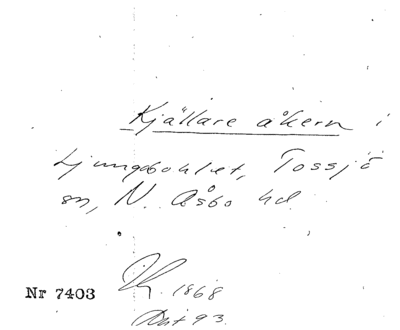 Kjällare åkern i
Ljungbohlet, Tossjö
sn, N. Åsbo hd
Nr 7403
1868
Akt 93.